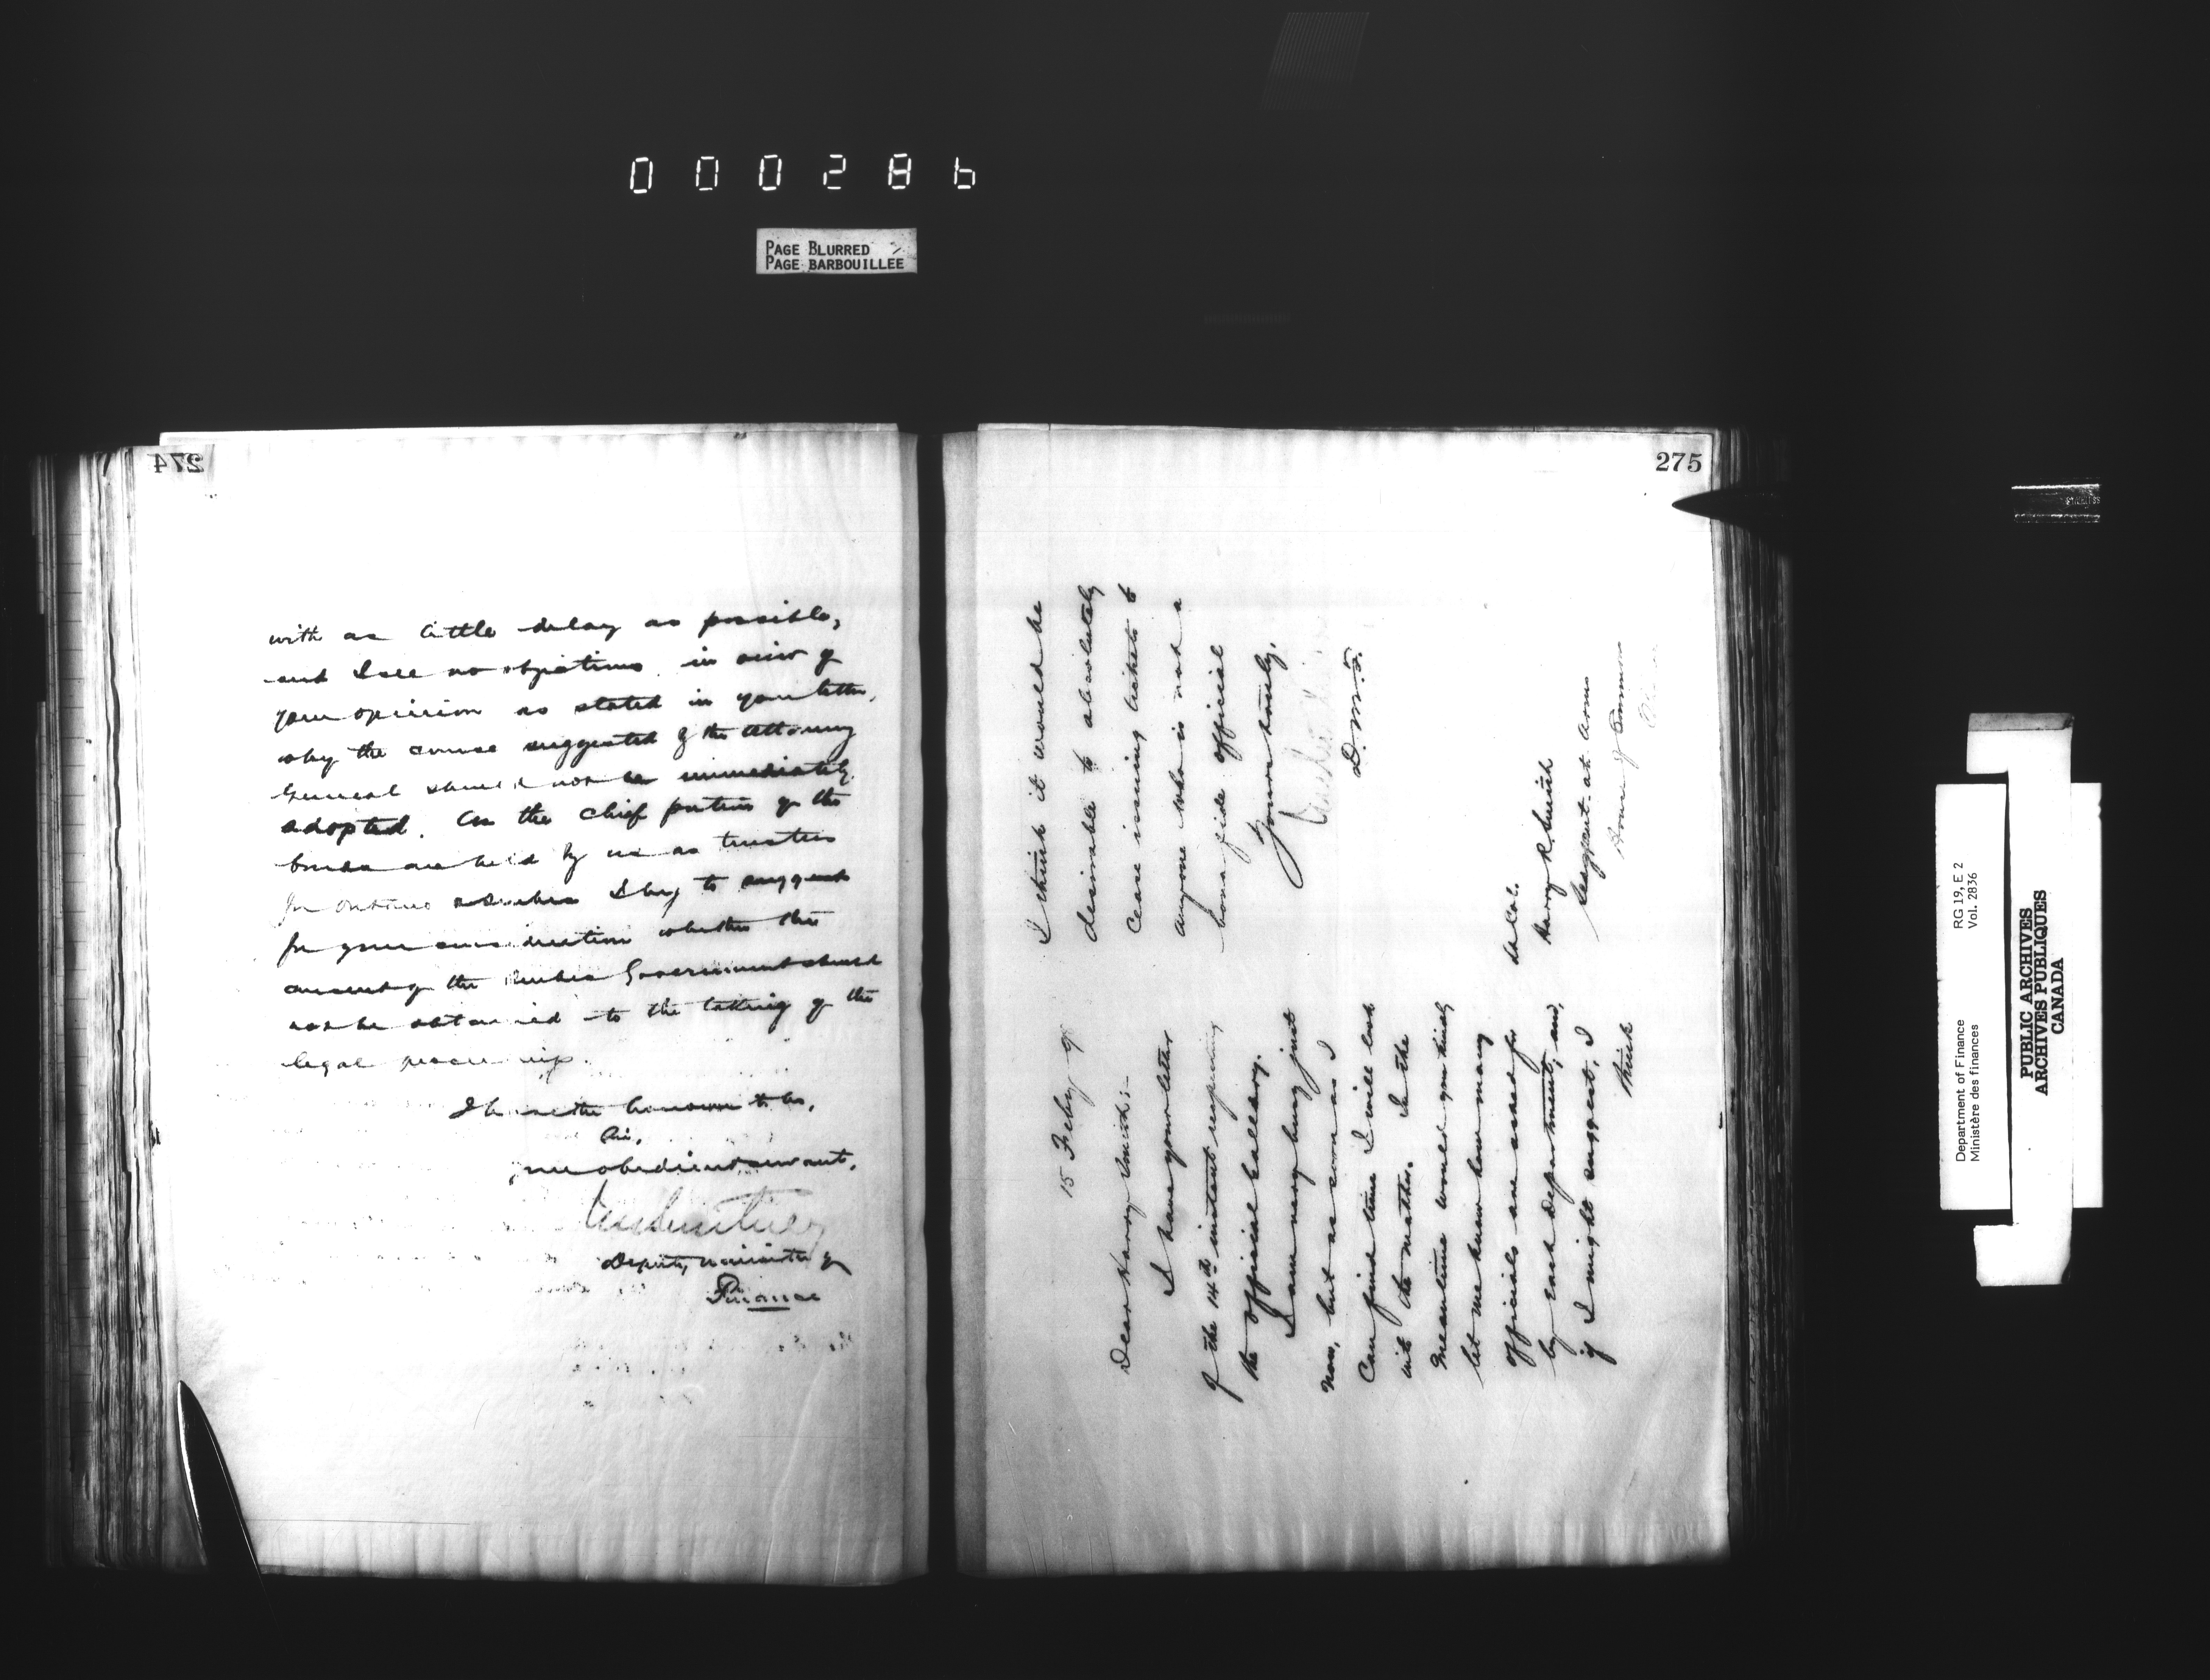 000286
PAGE BLURRED
PAGE BARBOUILLEE
274
with as little delay as possible,
and I see no objections in view of
your opinion as stated in your letter,
why the course suggested by the Attorney
General should not be immediately
adopted. As the chief portion of the
bonds are held by us as trustees
for Ontario & Quebec I beg to suggest
for your consideration whether the
consent of the Quebec Government should
not be obtained to the taking of the
legal proceedings.
I have the honour to be,
Sir,
your obedient servant,
Deputy Minister of
Finance
275
15 Feby 9
Dear Harry Smith:-
I have your letter
of the 14th instant respecting
the official gallery.
I am very busy just
now, but as soon as I
can find time I will look
into the matter. In the
meantime would you kindly
let me know how many
officials are asked for
by each department; and,
if I might suggest, I
think
I think it would be
desirable to absolutely
cease issuing tickets to
anyone who is not a
bona fide official
Yours truly,
D.M.F.
Harry R Smith
Sergeant-at-Arms
House of Commons
Department of Finance
Ministère des finances
RG 19, E 2
Vol. 2836
PUBLIC ARCHIVES
ARCHIVES PUBLIQUES
CANADA